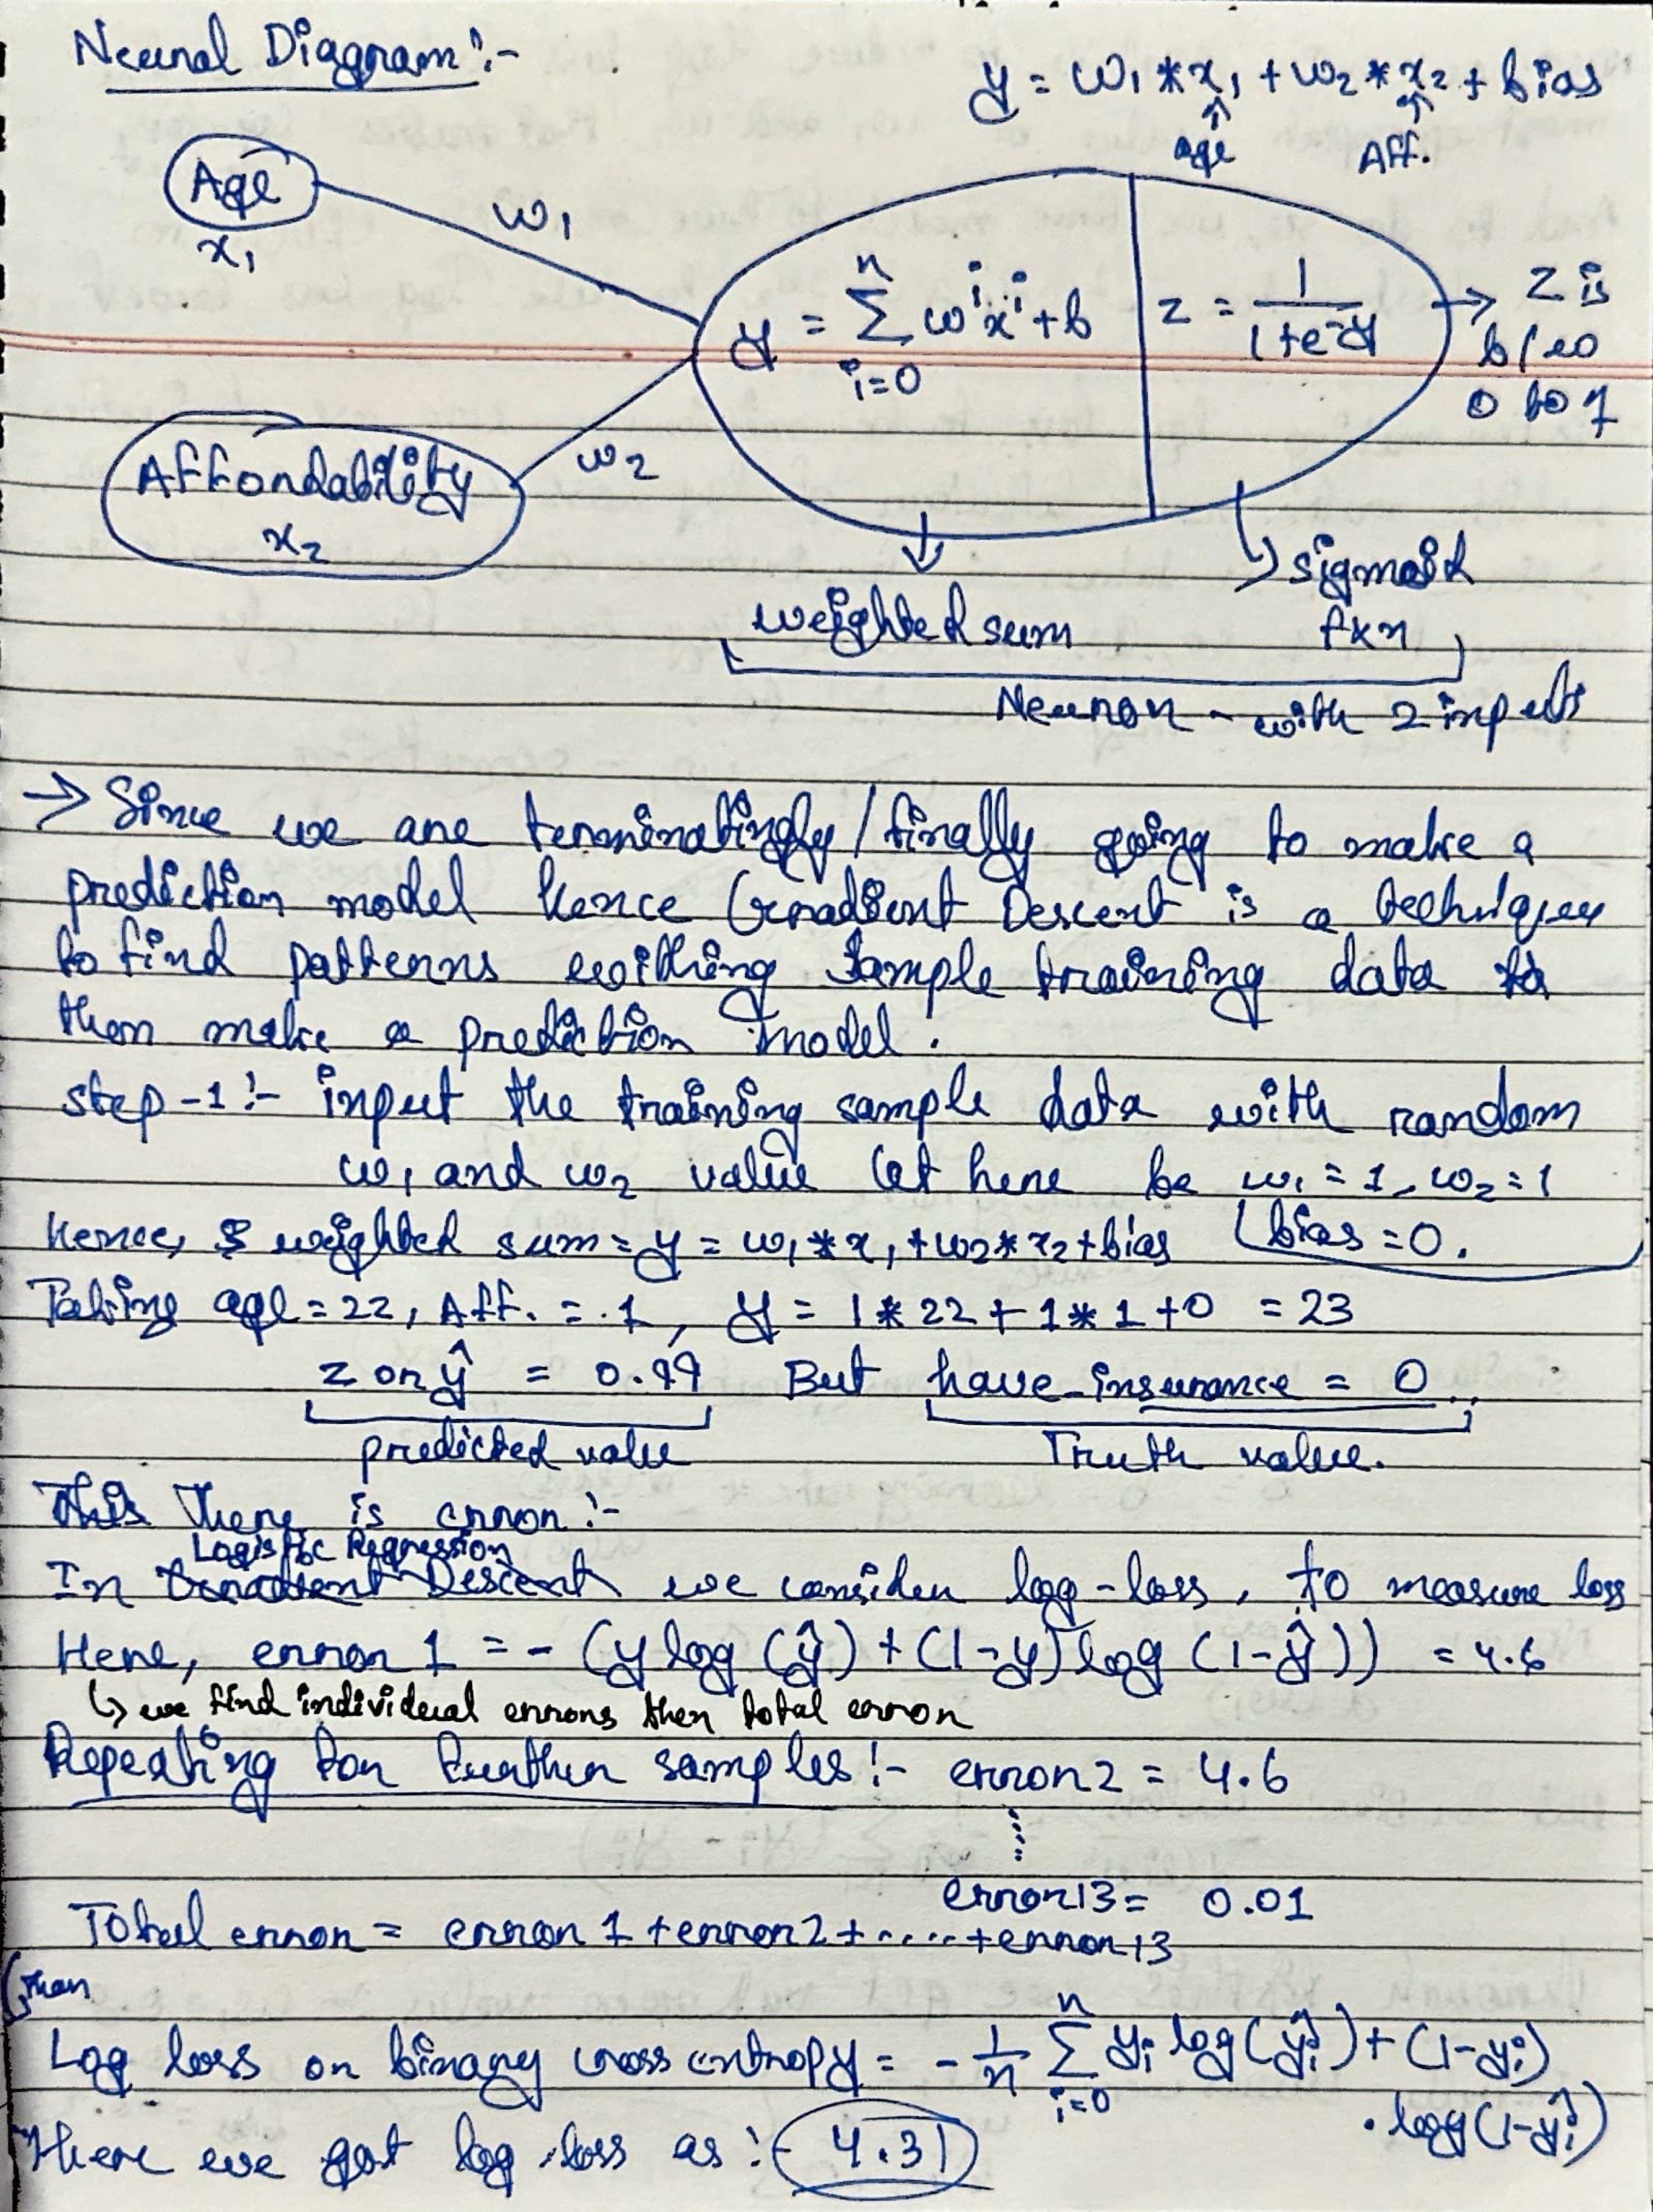 Neural Diagram :-
y = w1 * x1 + w2 * x2 + bias
age Aff.
Age
x1
w1
y = Σ w^i x^i + b
n
i=0
z = 1/(1+e^-y)
→ z is
b/w
0 to 1
Affordability
x2
w2
weighted sum
sigmoid
fxn
Neuron - with 2 inputs
→ Since we are terminatingly / finally going to make a
prediction model hence Gradient Descent is a technique
to find patterns withing sample training data to
then make a prediction model.
step-1 :- input the training sample data with random
w1 and w2 value let here be w1 = 1, w2 = 1
(bias = 0.
Hence, weighted sum = y = w1 * x1 + w2 * x2 + bias
Taking age = 22, Aff. = 1, y = 1 * 22 + 1 * 1 + 0 = 23
z or ŷ = 0.99 But have-insurance = 0
predicted value Truth value.
This there is error :-
Logistic Regression
In Gradient Descent we consider log-loss, to measure loss
Here, error 1 = - (y log (ŷ) + (1-y) log (1-ŷ)) = 4.6
↳ we find individual errors then total error
Repeating for further samples :- error2 = 4.6
error13 = 0.01
Total error = error 1 + error2 + ..... + error13
then
Log loss or binary cross entropy = - 1/n Σ yi log (ŷi) + (1-yi)
n
i=0
. log (1-ŷi)
Here we got log loss as :- 4.31